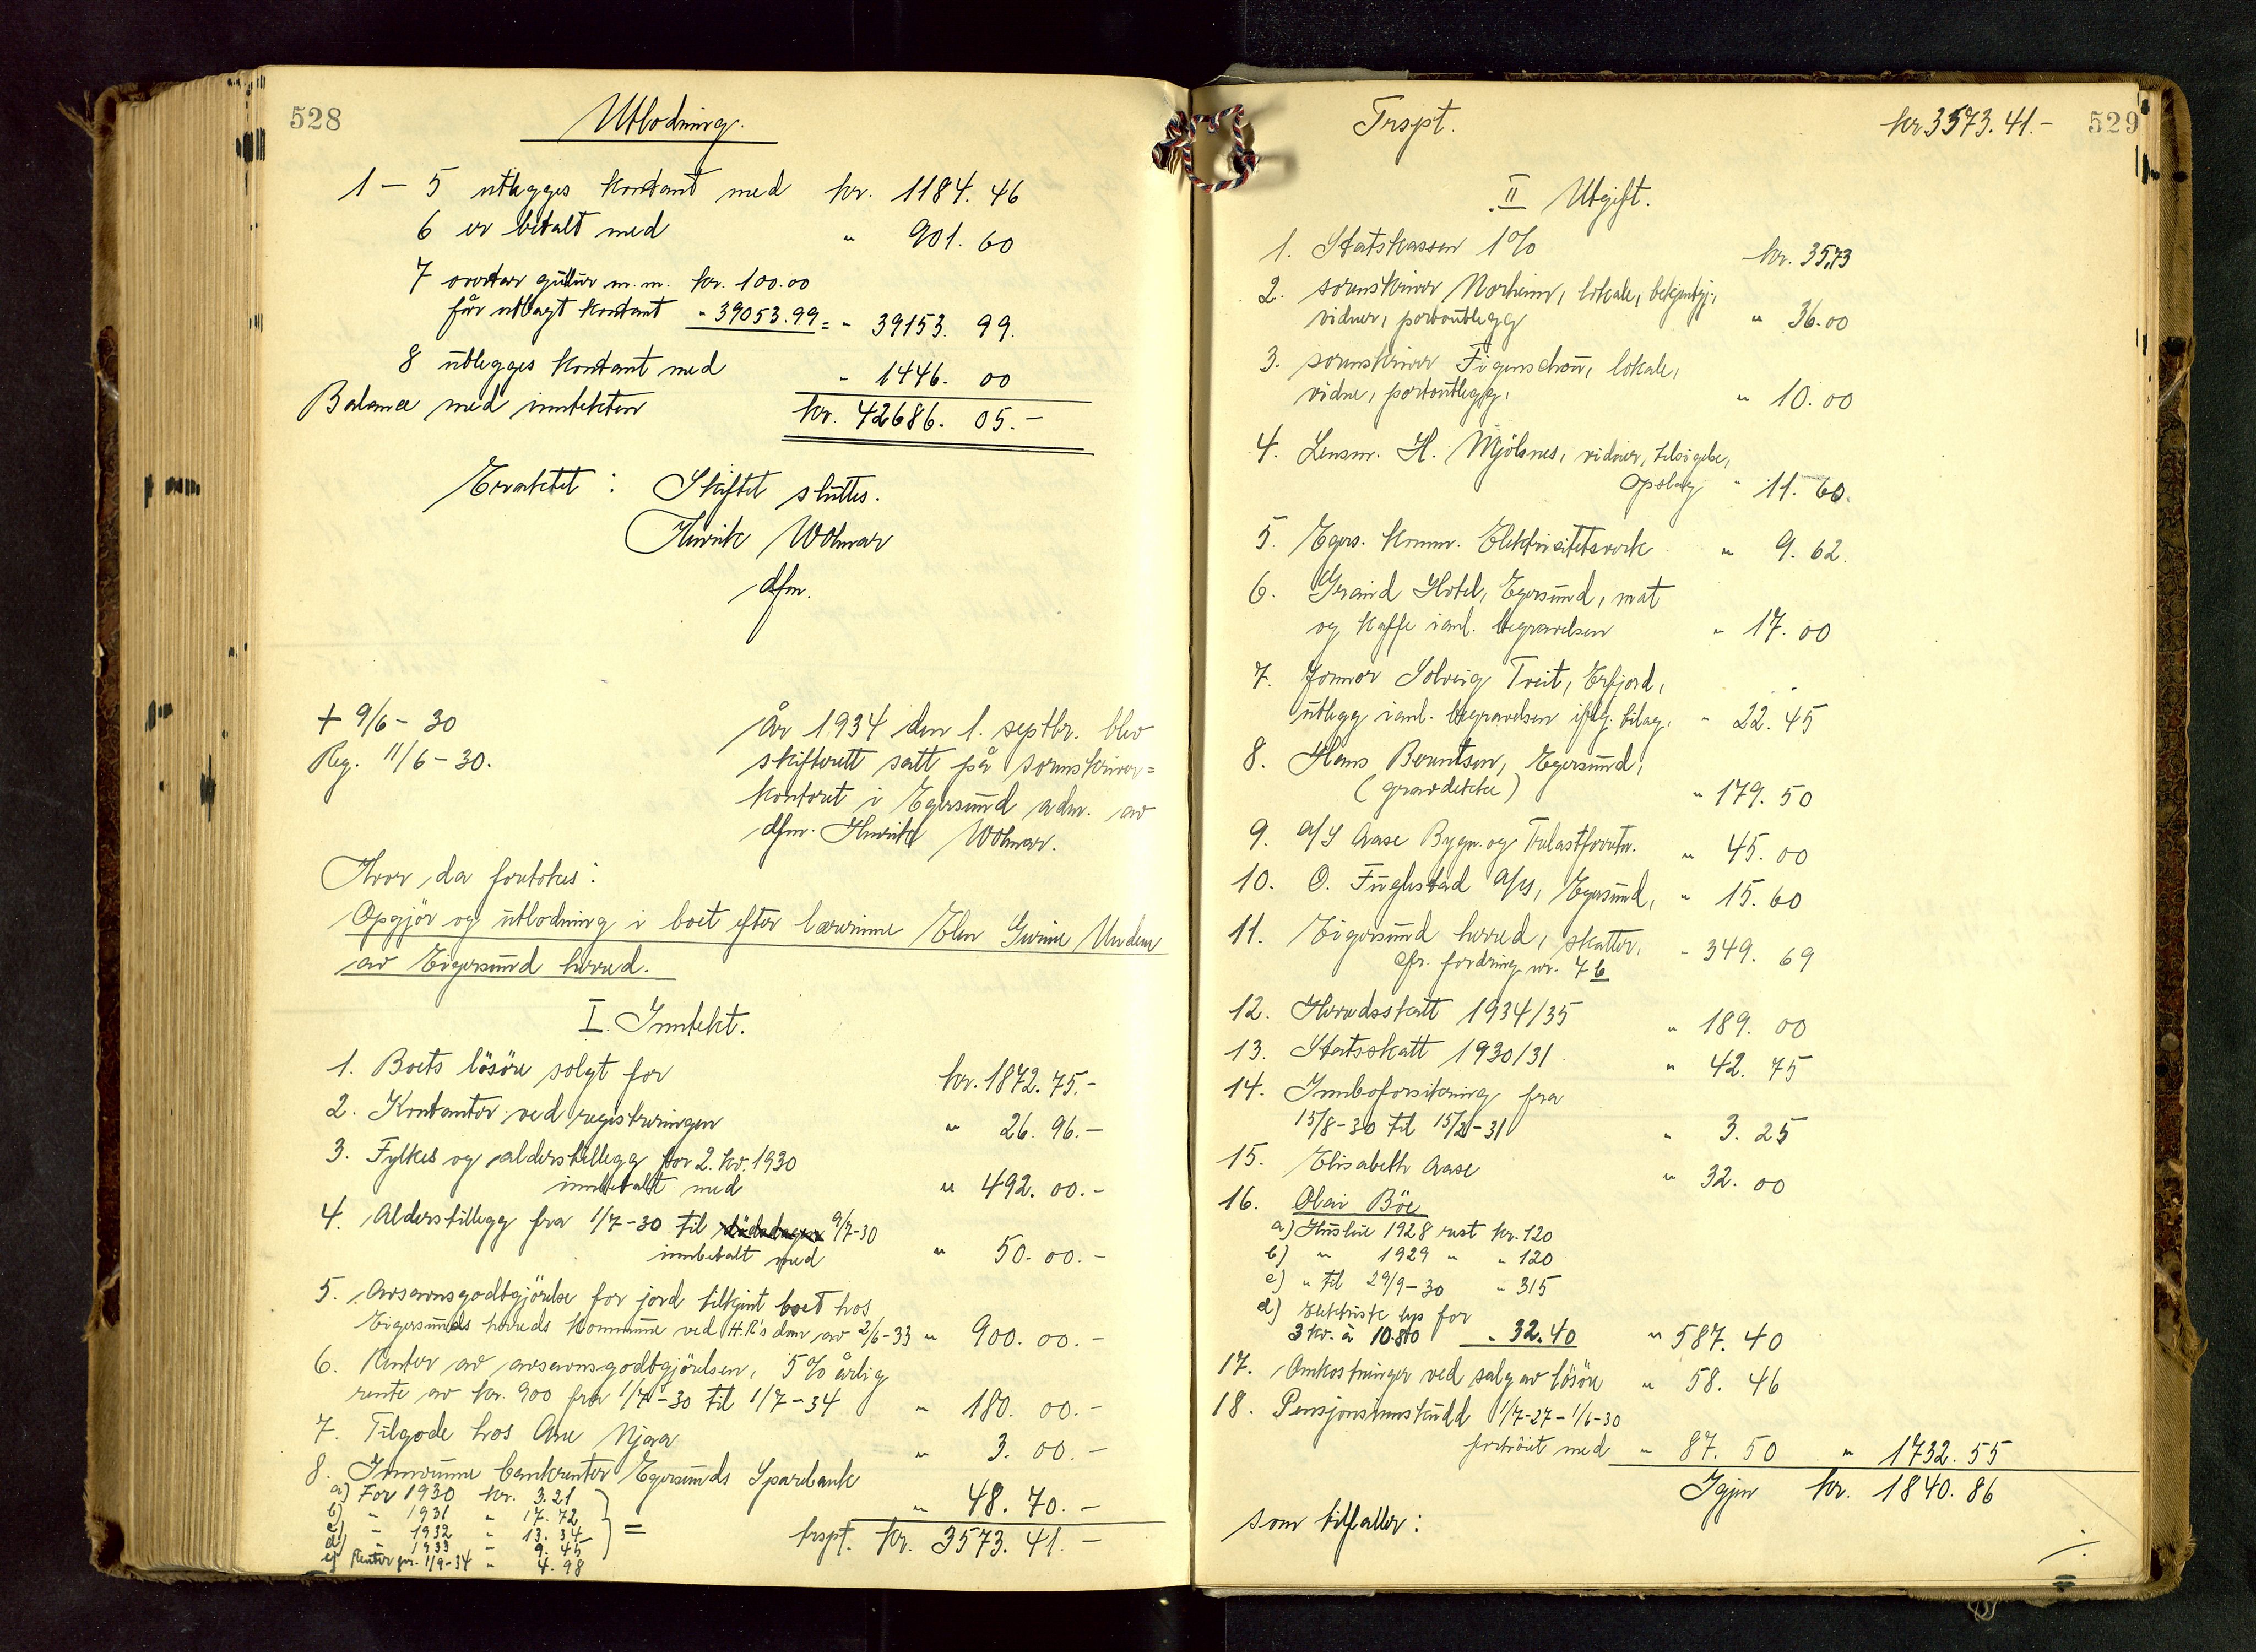 528
Utlodning.
1 - 5 utlegges kontant med kr. 1184. 46
6 er betalt med " 901. 60
7 overtar guldur m.m. kr. 100.00
får utlagt kontant " 39053.99 = " 39153. 99.
8 utlegges kontant med " 1446. 00
Balance med inntekten kr. 42686. 05.-
Eraktet: Skiftet sluttes.
Henrik Wolmar
dfm.
+ 9/6 - 30
Reg. 11/6 - 30.
År 1934 den 1. septbr. blev
skifterett satt på sorenskriver=
kontoret i Egersund adm. av
dfm. Henrik Wolmar.
Hvor da foretokes:
Opgjör og utlodning i boet efter lærerinne Elen Gurine Undem
av Eigersund herred.
I. Inntekt.
1. Boets lösöre solgt for kr. 1872. 75.-
2. Kontanter ved registreringen " 26. 96.-
3. Fylkes og alderstillegg for 2. kv. 1930
innbetalt med " 492. 00.-
4. Alderstillegg fra 1/7-30 til dödsdagen 9/7-30
innbetalt med " 50. 00.-
5. Avsavnsgodtgjörelse for jord tilkjent boet hos
Eigersunds herreds kommune ved H.R's dom av 2/6-33 " 900. 00.-
6. Renter av avsavnsgodtgjörelsen, 5% årlig
rente av kr. 900 fra 1/7-30 til 1/7-34 " 180. 00.-
7. Tilgode hos Ane Njaa " 3. 00.-
8. Innvunne bankrenter Egersunds Sparebank
" 48. 70.-
a) For 1930 kr. 3.21
b) " 1931 " 17.72
c) " 1932 " 13.34
d) " 1933 " 9.45
e) Renter pr. 1/9-34 " 4.98
=
trspt. kr. 3573. 41.-
Trspt. kr 3573. 41.- 529
II Utgift.
1. Statskassen 1% kr. 35.73
2. sorenskriver Norheim, lokale, bekjentgj.,
vidner, portoutlegg " 36.00
3. sorenskriver Figenschou, lokale,
vidne, portoutlegg, " 10. 00
4. Lensm. H. Mjölsnes, vidner, tilsigelse,
opslag " 11. 60.
5. Egers. komm. Elektricitetsverk " 9. 62.
6. Grand Hotel, Egersund, mat
og kaffe i anl. begravelsen " 17. 00
7. Jomnor Solveig Treit, Erfjord,
utlegg i anl. begravelsen iflg. bilag. " 22. 45
8. Hans Berentsen, Egersund,
(gravdekke) " 179. 50
9. A/S Aase Bygn. og Trelastforretn. " 45. 00
10. O. Fuglestad A/S, Egersund, " 15. 60
11. Eigersund herred, skatter, " 349. 69
cfr. fordring nr. 7 b
12. Herredsskatt 1934/35 " 189. 00
13. Statsskatt 1930/31 " 42. 75
14. Innboforsikring fra
15/8-30 til 15/2-31 " 3. 25
15. Elisabeth Aase " 32. 00
16. Olai Böe
a) Husleie 1928 rest kr. 120
b) " 1929 " " 120
c) " til 29/9-30 " 315
d) Elektrisk lys for
3 kv. à 10.80 " 32.40 " 587. 40
17. Omkostninger ved salg av lösöre " 58. 46
18. Pensjonsinnskudd 1/7-27 - 1/6-30
forhöiet med " 87. 50 " 1732. 55
Igjen kr. 1840. 86
som tilfaller:
./.